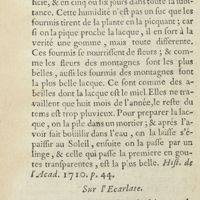 ficie, & en cinq ou six jours dans toute la subs-
tance. Cette humidité n'est pas un suc que les
fourmis tirent de la plante en la picquant; car
si on la pique proche la lacque, il en sort à la
verité une gomme, mais toute différente.
Ces fourmis se nourrissent de fleurs; & com-
me les fleurs des montagnes sont les plus
belles, aussi les fourmis des montagnes font
la plus belle lacque. Ce sont comme des a-
beilles dont la lacque est le miel. Elles ne tra-
vaillent que huit mois de l'année, le reste du
tems est trop pluvieux. Pour preparer la lac-
que, on la pile dans un mortier; & après l'a-
voir fait bouillir dans l'eau, on la laisse s'é-
paissir au Soleil, ensuite on la passe par un
linge, & celle qui passe la premiere en gout-
tes transparentes, est la plus belle. Hist. de
l'Acad. 1710. p. 44.
Sur l'Ecarlate.